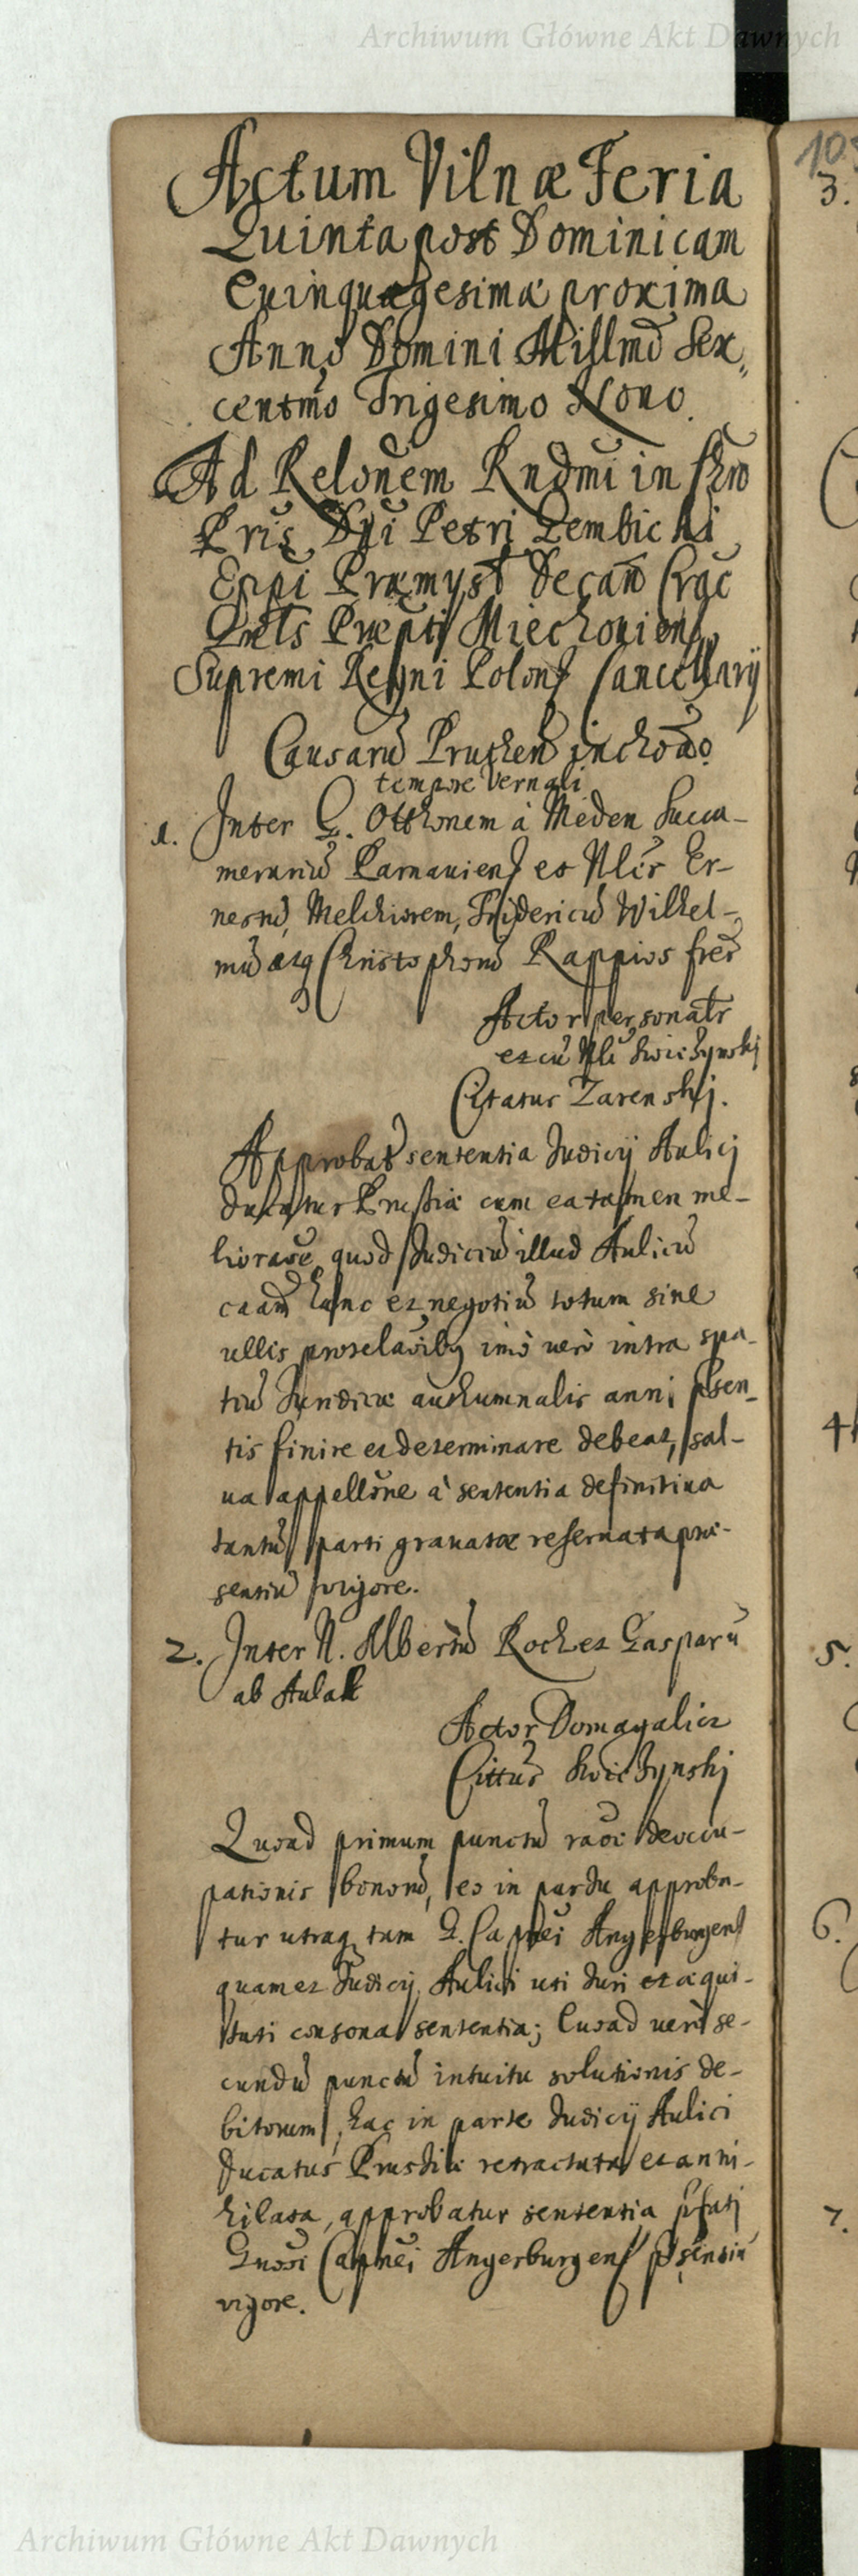 Archiwum Główne Akt Dawnych
Actum Vilnæ Feria
Quinta post Dominicam
Quinquagesimæ proxima
Anno Domini Millmo Sex„
centmo Trigesimo Nono.
Ad Relonem Rndmi in Chro
Pris Dni Petri Gembicki
Eppi Præmysl Decan Crac
Gnlis Præpti Miechovien
Supremi Regni Polon Cancellarij
Causaru Pruthen inchoa
tempore vernali
1. Inter G. Otthonem à Meden Succa-
merariu Parnavien et Nles Er-
nestu, Melchiorem, Fridericu Wilhel-
mu atq Christophoru Rappios fres
Actor personalr
et cu Nli Swiczynski
Citatus Zarenskj.
Approbat sententia Judicij Aulicj
Ducatus Prussiæ cum ea tamen me-
liorae quod Judiciu illud Aulicu
caam hanc et negotiu totum sine
ullis protelaoibq imo vero intra spa-
tiu Juridicæ authumnalis anni psen-
tis finire et determinare debeat, sal-
va appellone a sententia definitiva
tantu parti gravatæ reservata præ-
sentiu vigore.
2. Inter N. Albertu Roch et Gasparu
ab Aulak
Actor Domagalicz
Cittus Swiczynski
Quoad primum punctu raoe deoccu-
pationis bonoru, eo in passu approba-
tur utraq tam G. Capnei Angerburgen
quam et Judicij Aulici uti Juri et æqui-
tati consona sententia; Quoad vero se-
cundu punctu intuitu solutionis de-
bitorum, hac in parte Judicij Aulici
Ducatus Prussiæ retractata et anni-
hilata, approbatur sententia pfati
Gnosi Capnei Angerburgen psentiu
vigore.
3.
4
5.
6.
7.
Archiwum Główne Akt Dawnych